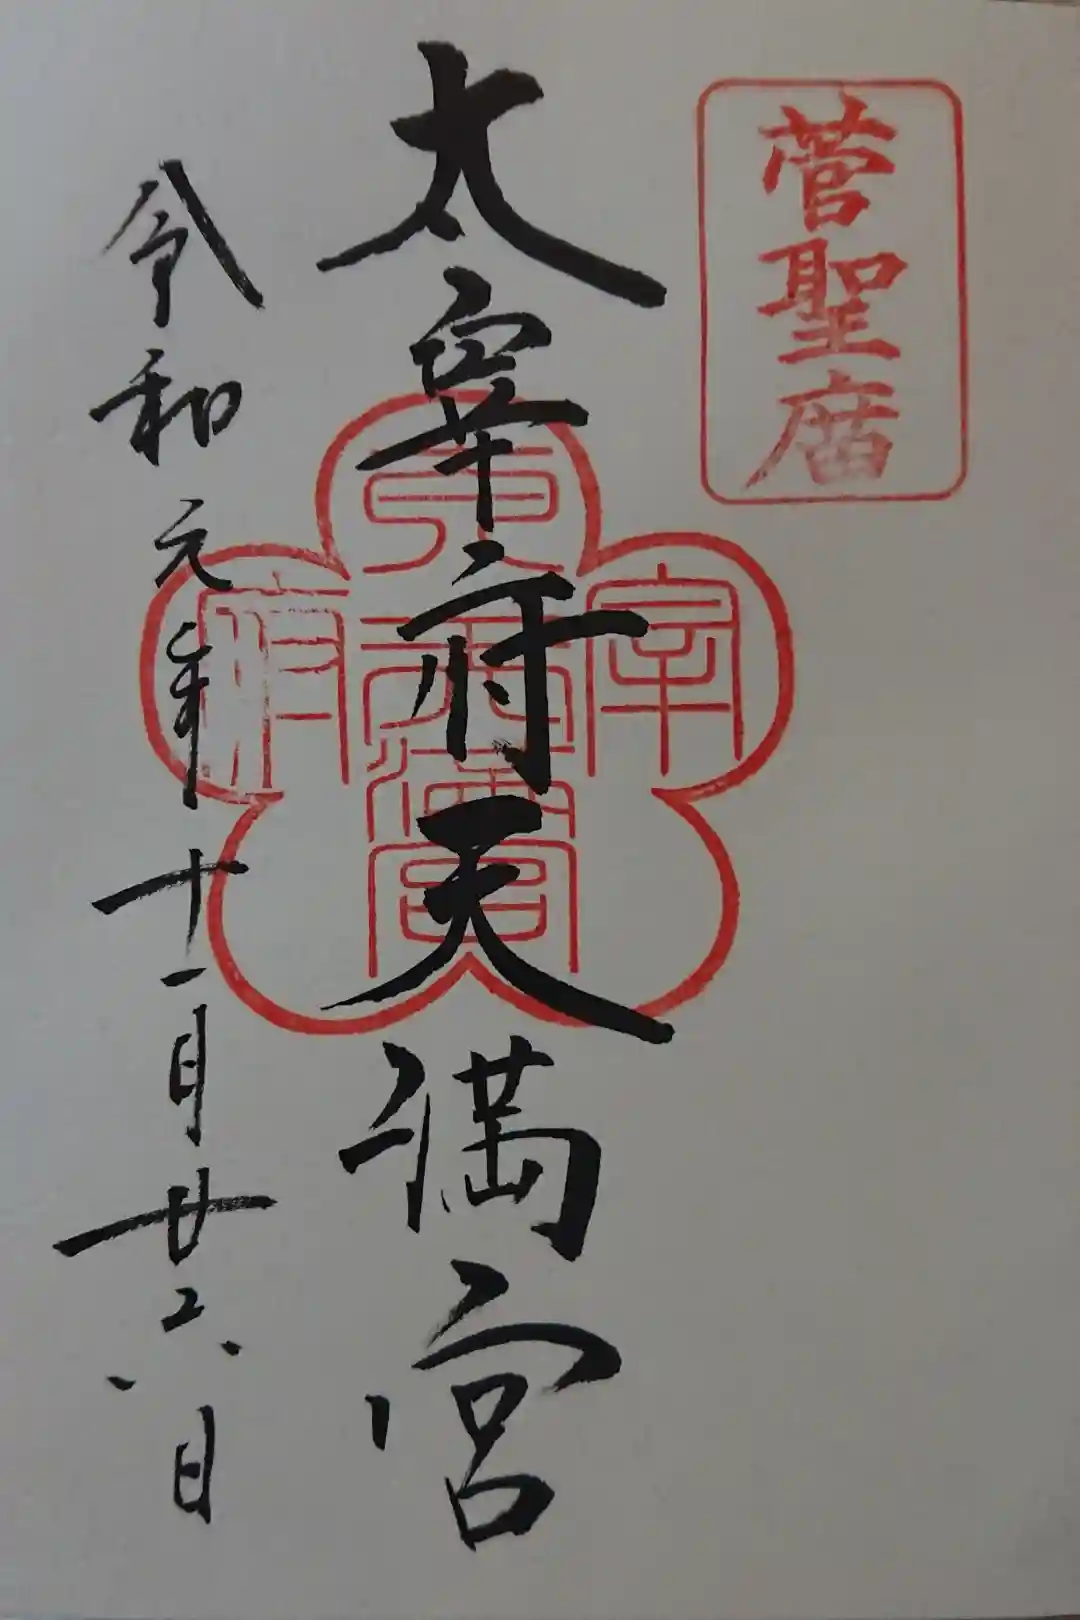 菅聖庿
太宰府天満宮
太宰府天満宮
令和元年十一月廿六日